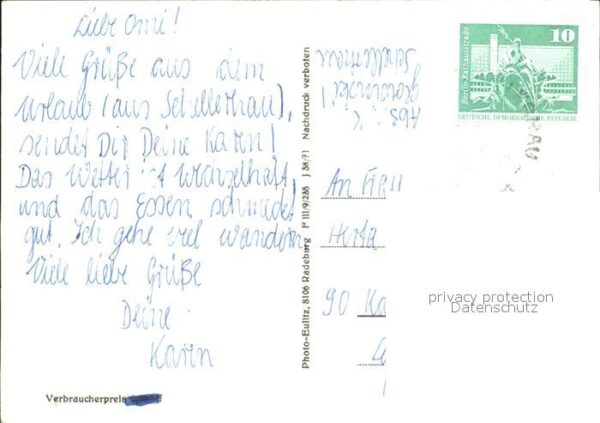 Liebe Omi!
Viele Grüße aus dem
Urlaub (aus Schellerhau),
sendet Dir Deine Karen!
Das Wetter ist
und das Essen schmeckt
gut. Ich gehe viel wandern.
Viele liebe Grüße
Deine
Karen
Verbraucherpreis
Photo-Eulitz, 8106 Radeburg P III/9/286 J 38/71 Nachdruck verboten
Abs.: K.
10
Berlin, Rathausstraße
DEUTSCHE DEMOKRATISCHE REPUBLIK
An
Herta
90 Ka
privacy protection
Datenschutz